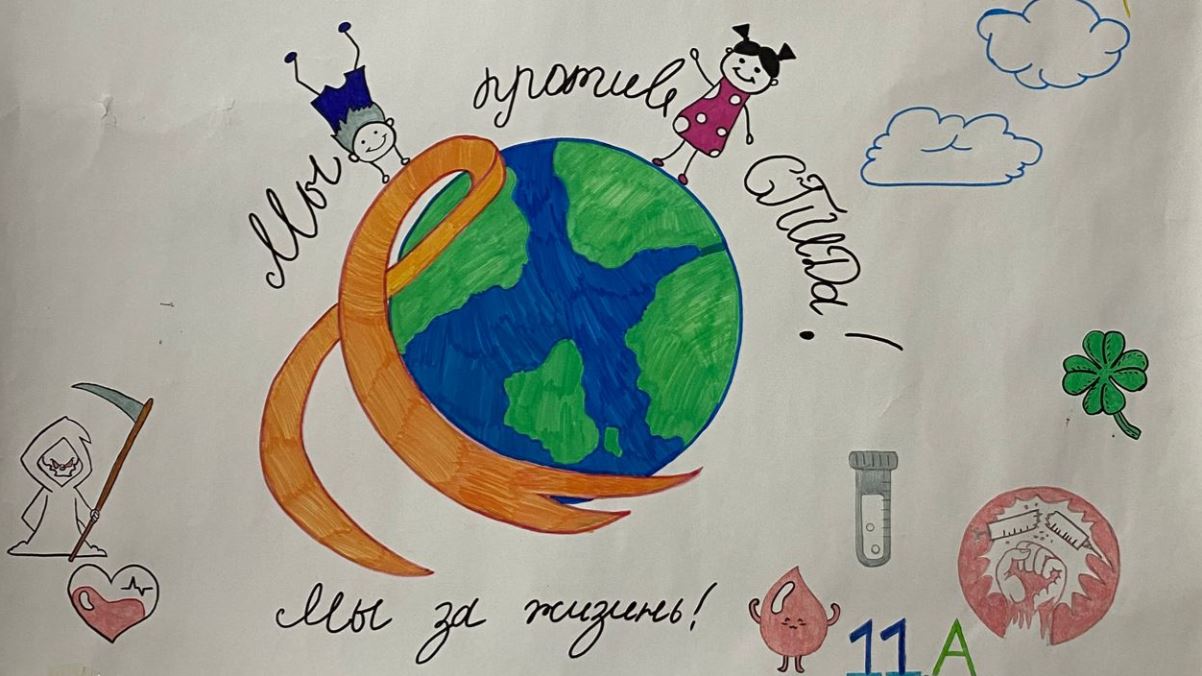 Мы против СПИДа!
Мы за жизнь!
11 А